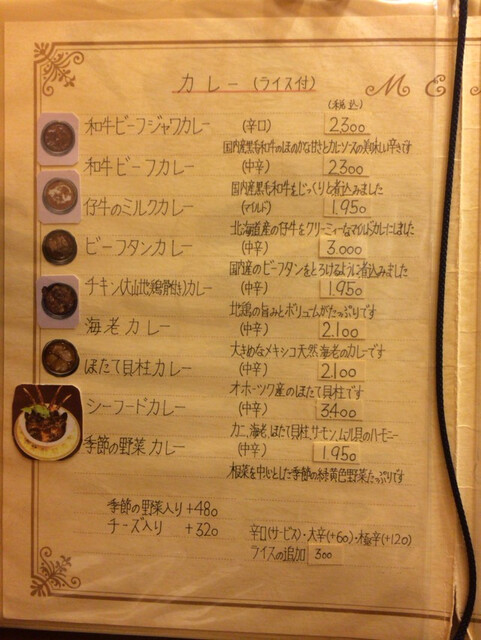 カレー(ライス付)
MEN
(税込)
和牛ビーフジャワカレー (辛口) 2300
国内産黒毛和牛のほのかな甘さとカレーソースの美味しい辛さです
和牛ビーフカレー (中辛) 2300
国内産黒毛和牛をじっくりと煮込みました
仔牛のミルクカレー (マイルド) 1.950
北海道産の仔牛をクリーミーなマイルドカレーにしました
ビーフタンカレー (中辛) 3.000
国産のビーフタンをとろけるように煮込みました
チキン(大山地鶏骨付き)カレー (中辛) 1.950
地鶏の旨みとボリュームがたっぷりです
海老カレー (中辛) 2.100
大きめなメキシコ天然海老のカレーです
ほたて貝柱カレー (中辛) 2.100
オホーツク産のほたて貝柱です
シーフードカレー (中辛) 3400
カニ、海老、ほたて貝柱、サーモン、ムール貝のハーモニー
季節の野菜カレー (中辛) 1.950
根菜を中心とした季節の緑黄色野菜たっぷりです
季節の野菜入り +480
チーズ入り +320
辛口(サービス)・大辛(+60)・極辛(+120)
ライスの追加 300